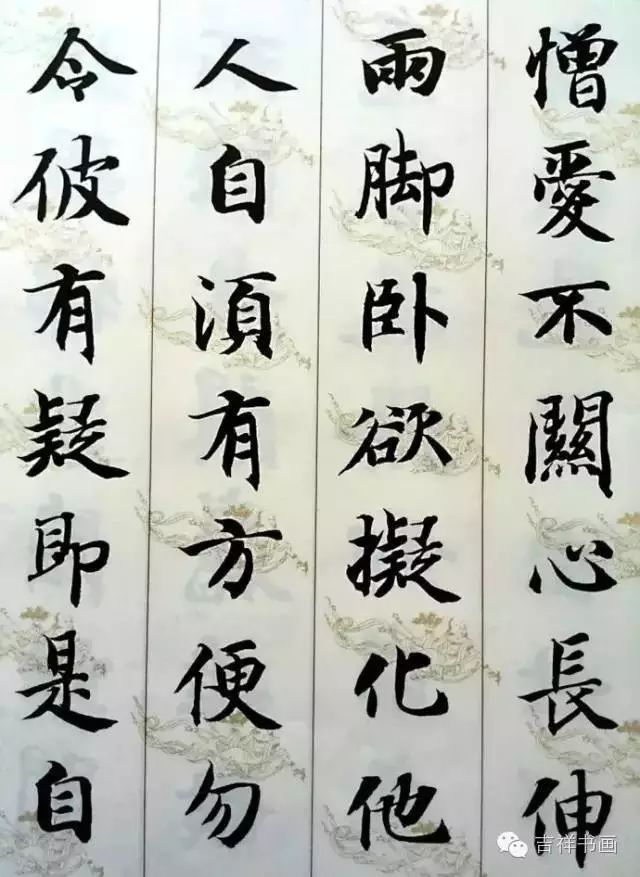 憎愛不關心長伸
兩脚卧欲擬化他
人自須有方便勿
令彼有疑即是自
吉祥书画